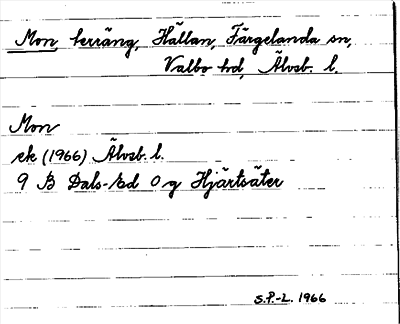 Mon, terräng, Hällan, Färgelanda sn,
Valbo hd, Älvsb. l.
Mon
ek (1966) Älvsb. l.
9 B Dals-Ed 0 g Hjärtsäter
S.P.-L. 1966